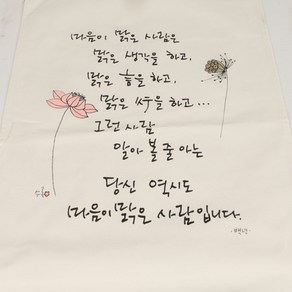 마음이 맑은 사람은
맑은 생각을 하고,
맑은 글을 하고,
맑은 싸움을 하고...
그런 사람
알아 볼 줄 아는
당신 역시도
마음이 맑은 사람입니다.